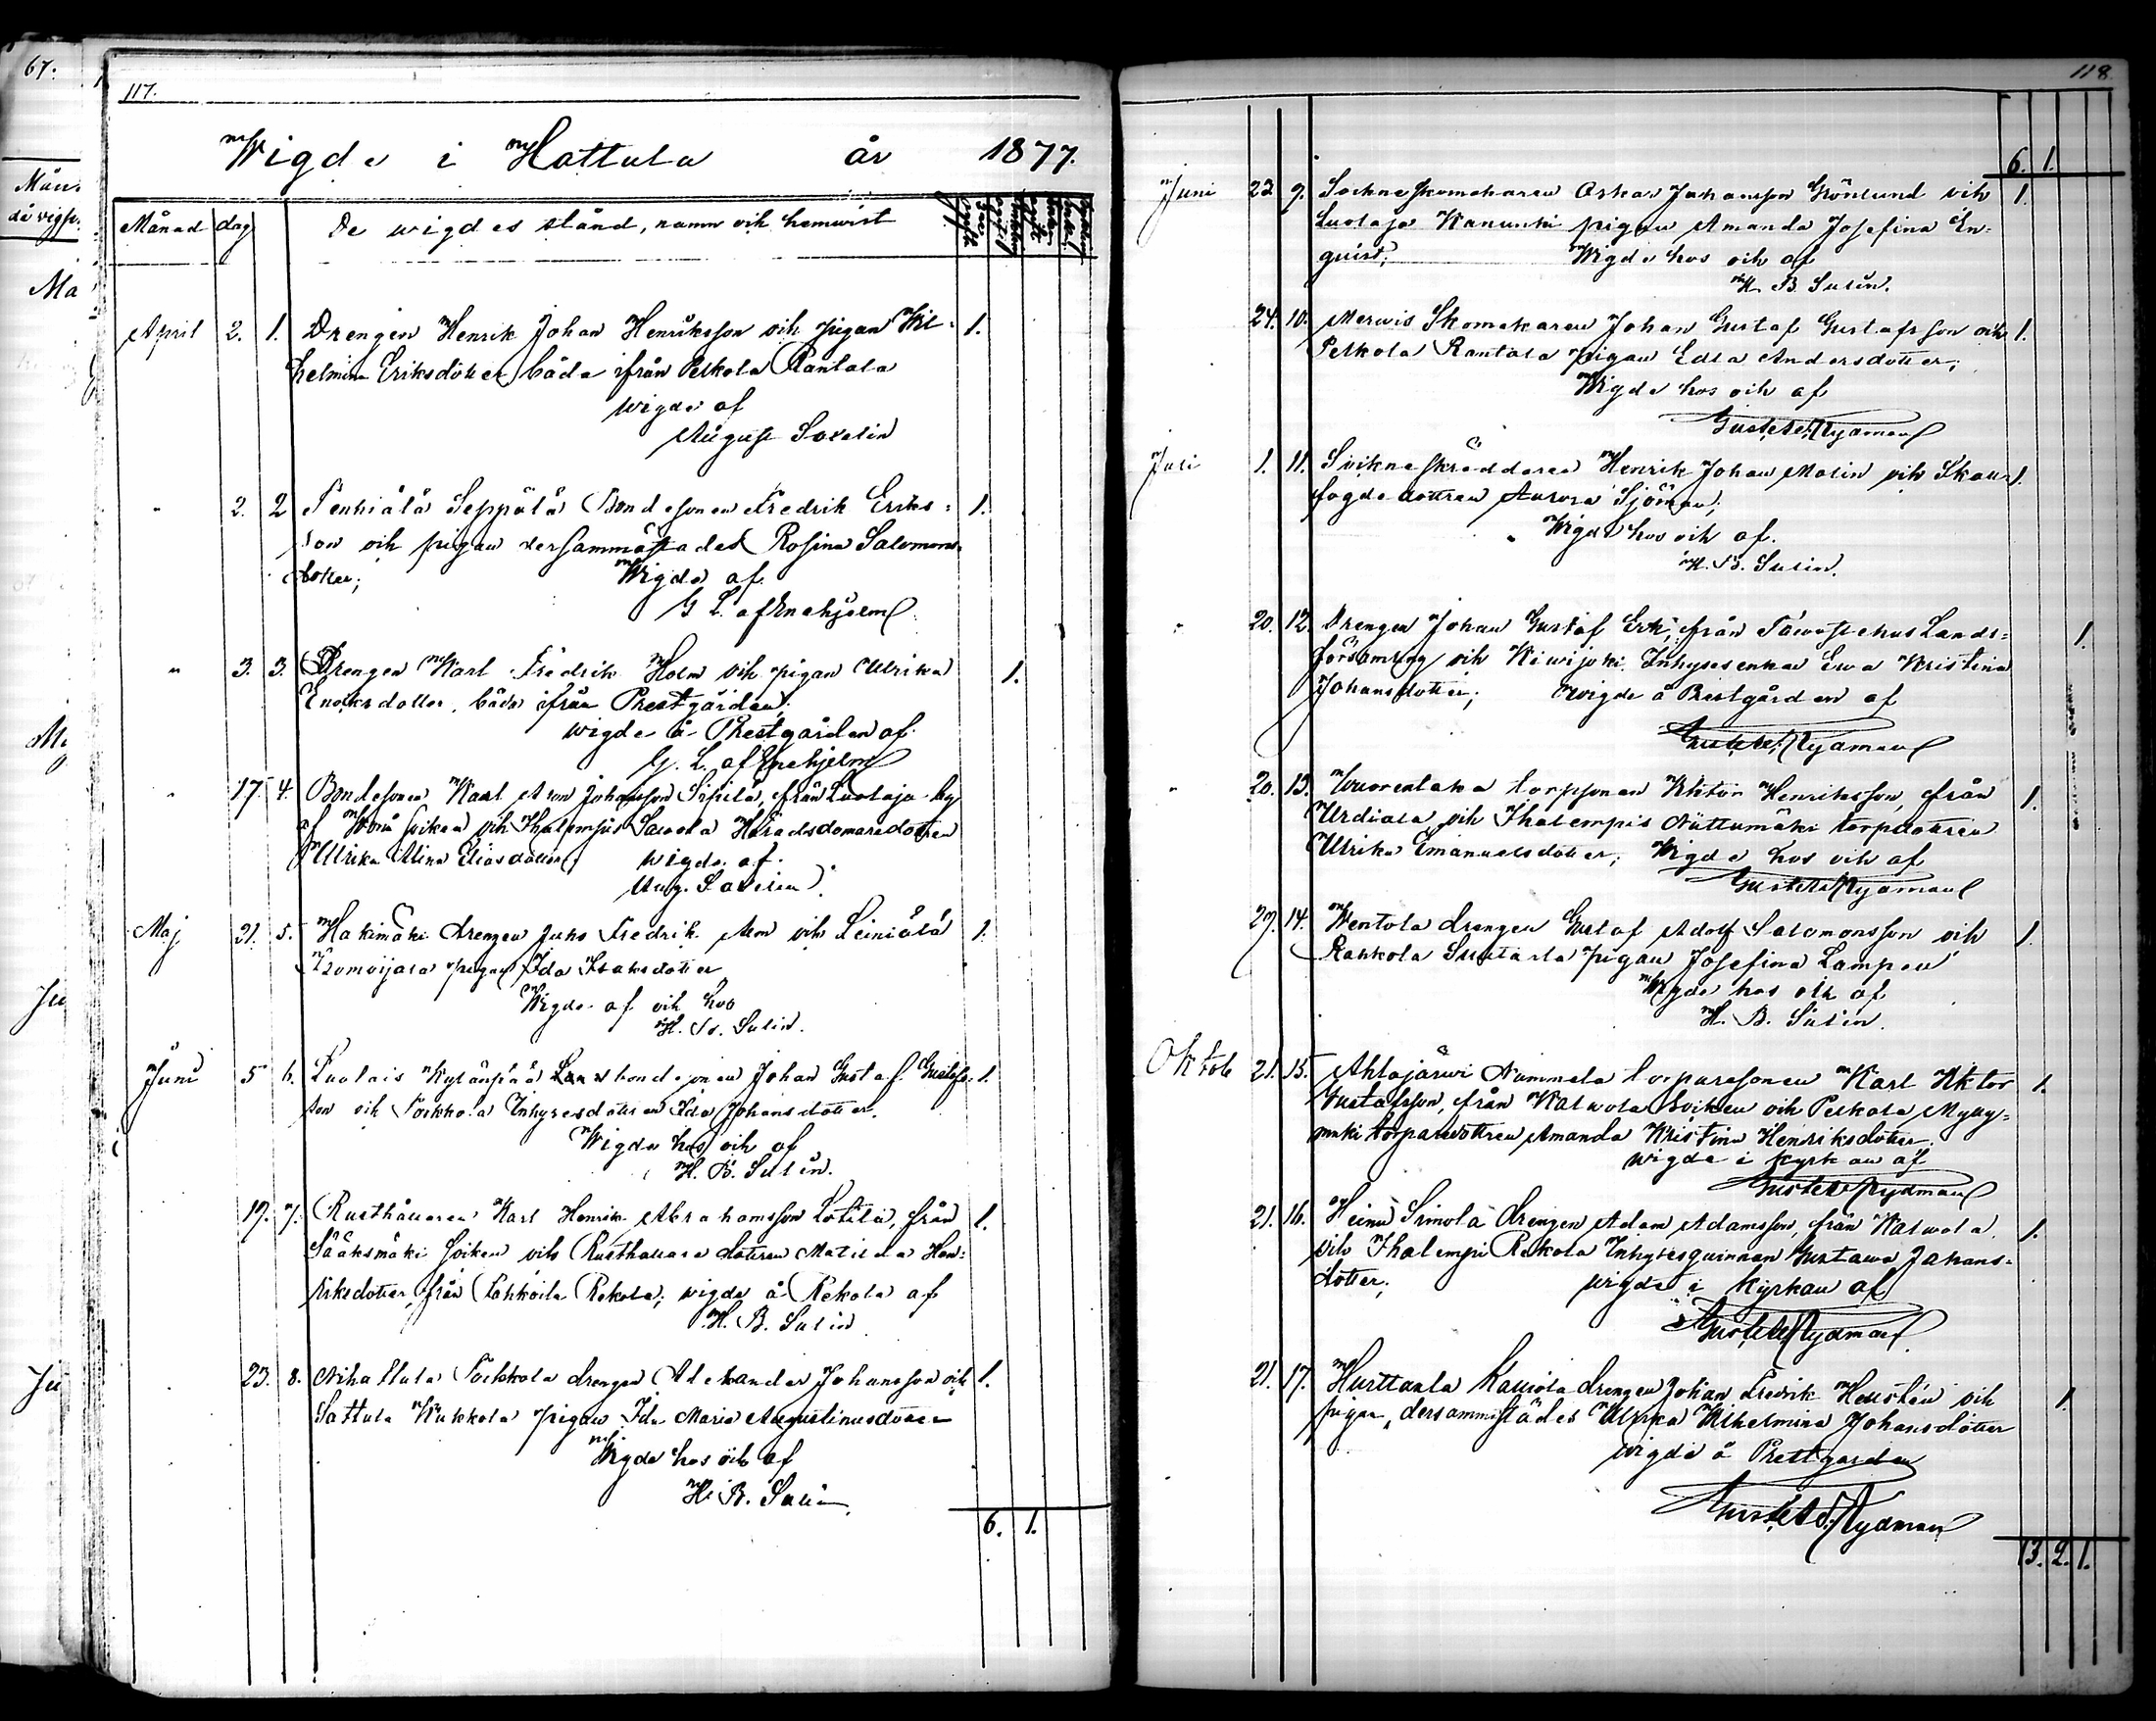 67.
117.
Wigde i Hattula år 1877.
Månad dag De wigdes stånd, namn och hemwist
April 2. 1. Drengen Henrik Johan Henriksson och pigan Wil- 1.
helmina Eriksdotter båda ifrån Pelkola Rantala
wigde af
August Saxelin
" 2. 2 Tenhiälä Seppälä Bondesonen Fredrik Eriks- 1.
son och pigan dersammastädes Rosina Salomons-
dotter; Wigde af
G L. af Enehjelm
" 3. 3. Drengen Karl Fredrik Holm och pigan Ulrika 1.
Enoksdotter, båda ifrån Prestgården;
wigde å Prestgården af
G. L. af Enehjelm
" 17. 4. Bondesonen Karl Aron Johansson Sipilä, från Luolaja by
af socken och Ihalempis Sawola Häradsdomaredottren
Ulrika Alina Eliasdotter; wigde af
Aug. Saxelin
Maj 21. 5. Hakimäki drengen Juho Fredrik och Leiniälä 1.
pigan Ida Isaksdotter
Wigde af och hos
H. B. Sulin.
Juni 5 6. Luolais Kylänpää bondesonen Johan Gustaf Gustafs- 1.
son och Torkkola Inhysesdottren Ida Johansdotter.
Wigde hos och af
H. B. Sulin.
19. 7. Rusthållaren Karl Henrik Abrahamsson Lotila, från 1.
Sääksmäki socken och Rusthållare dottren Matilda Hen-
riksdotter från Rahkoila Rekola; wigde å Rekola af
H. B. Sulin
23. 8. Nihattula Torkkola drengen Alexander Johansson och 1.
Sattula Kukkola pigan Ida Maria Augustinusdotter
Wigde hos och af
H. B. Sulin
6. 1.
118
6. 1.
Juni 23 9. Sockneskomakaren Oskar Johansson Grönlund och 1.
Luolaja Kanunki pigan Amanda Josefina En-
quist; Wigde hos och af
H. B. Sulin.
24. 10. Merwis Skomakaren Johan Gustaf Gustafsson och 1.
Pelkola Rantala pigan Edla Andersdotter;
Wigde hos och af
Gust. Rydman
Juli 1. 11. Sockneskräddaren Henrik Johan Malin och Skogs- 1.
fogde dottren Aurora Sjöman;
Wigde hos och af.
H. B. Sulin.
" 20. 12. Drengen Johan Gustaf Erk, från Tawastehus Lands- 1.
församling och Kiwijoki Inhysesenkan Ewa Kristina
Johansdotter; wigde å Prestgården af
Gust. Rydman
" 20. 13. Wuorentaka torpsonen Viktor Henriksson, från 1.
Urdiala och Ihalempis Niittumäki torpdottren
Ulrika Emanuelsdotter; Wigde hos och af
Gust. Rydman
29. 14. Wentola drengen Gustaf Adolf Salomonsson och 1.
Rahkola Suutarla pigan Josefina Lampen
Wigde hos och af
H. B. Sulin.
Oktob 21. 15. Ahlajärwi Nummela torparesonen Karl Viktor 1.
Gustafsson, från Kalwola socken och Pelkola Myny-
mäki torparedottren Amanda Kristina Henriksdotter.
wigde i kyrkan af
Gust. Rydman
21. 16. Heinu Simola drengen Adam Adamsson, från Kalwola 1.
och Ihalempi Rekola Inhysesqwinnan Gustawa Johans-
dotter; wigde i kyrkan af
Gust. Rydman
21. 17. Hurttaala Kauiola drengen Johan Fredrik Heusten och 1.
pigan, dersammastädes Ulrika Wilhelmina Johansdotter
wigde å Prestgården
Gust. Rydman
13. 2. 1.